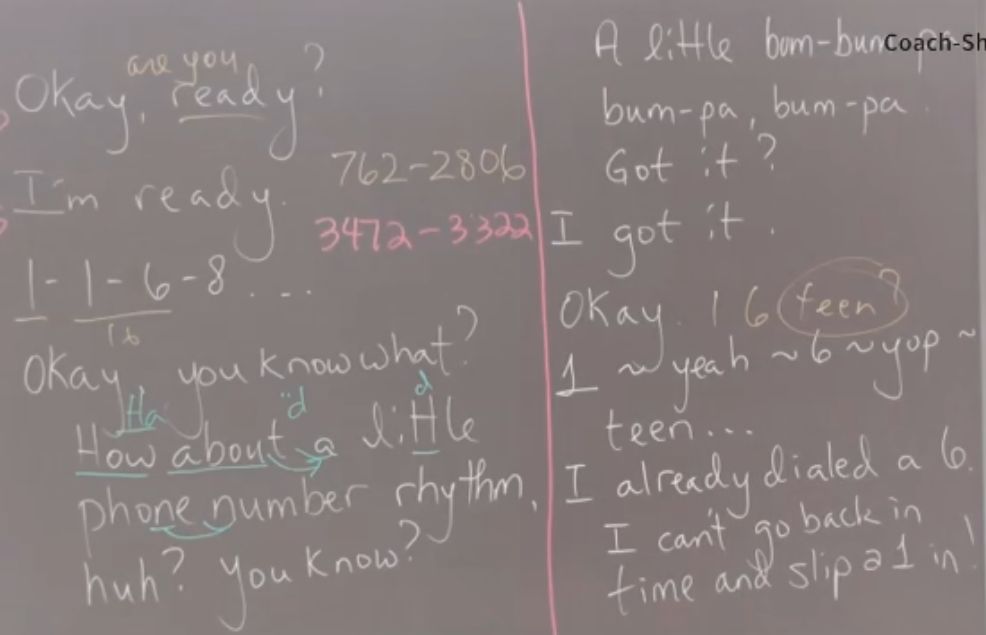 are you
Okay, ready?
I'm ready.
762-2806
3472-3322
1-1-6-8 ....
16
Okay, you know what?
Ha d d
How about a little
phone number rhythm,
huh? you know?
A little bum-bum-
Coach-Sh
bum-pa, bum-pa.
Got it?
I got it.
Okay. 1 6 teen?
1 ~ yeah ~ 6 ~ yup ~
teen...
I already dialed a 6.
I can't go back in
time and slip a 1 in!